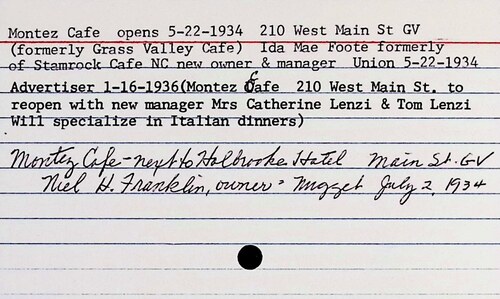 Montez Cafe opens 5-22-1934 210 West Main St GV
(formerly Grass Valley Cafe) Ida Mae Foote formerly
of Stamrock Cafe NC new owner & manager Union 5-22-1934
Advertiser 1-16-1936(Montez Cafe 210 West Main St. to
reopen with new manager Mrs Catherine Lenzi & Tom Lenzi
Will specialize in Italian dinners)
Montez Cafe - next to Holbrooke Hotel Main St. GV
Niel H. Franklin, owner = Nugget July 2, 1934